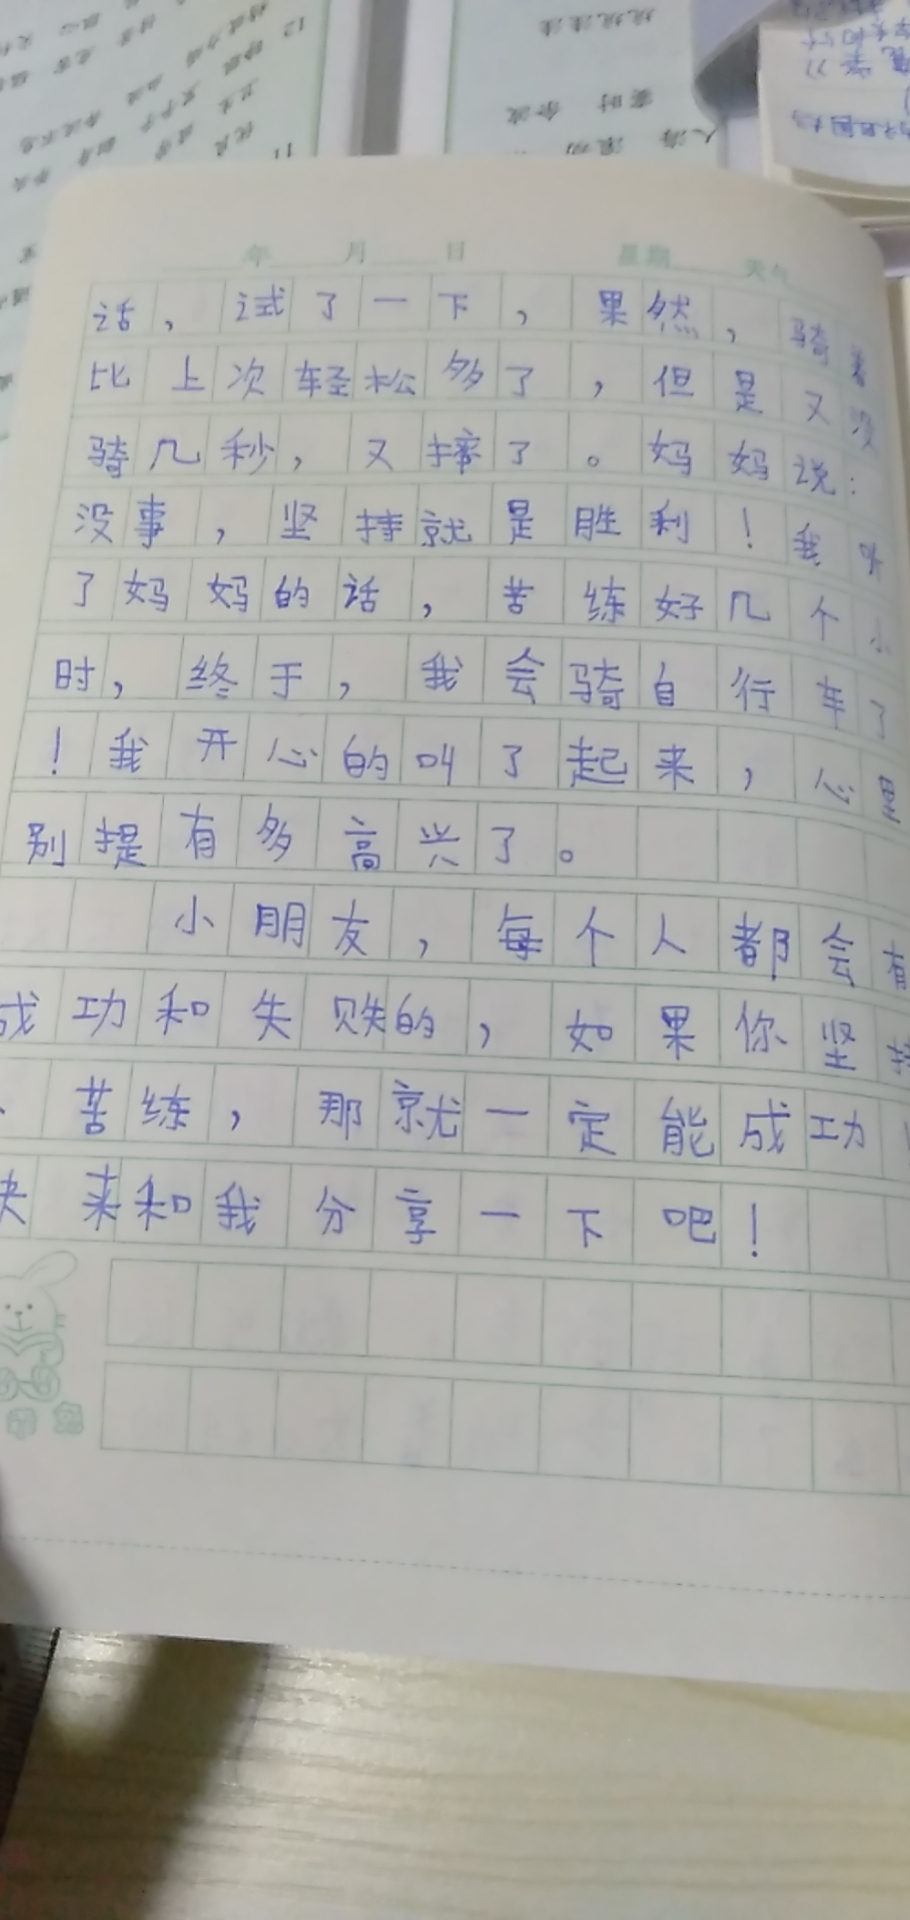 年 月 日 星期 天气
话，试了一下，果然，骑着
比上次轻松多了，但是又没
骑几秒，又摔了。妈妈说：
没事，坚持就是胜利！我听
了妈妈的话，苦练好几个小
时，终于，我会骑自行车了
！我开心的叫了起来，心里
别提有多高兴了。
小朋友，每个人都会有
成功和失败的，如果你坚持
、苦练，那就一定能成功！
快来和我分享一下吧！